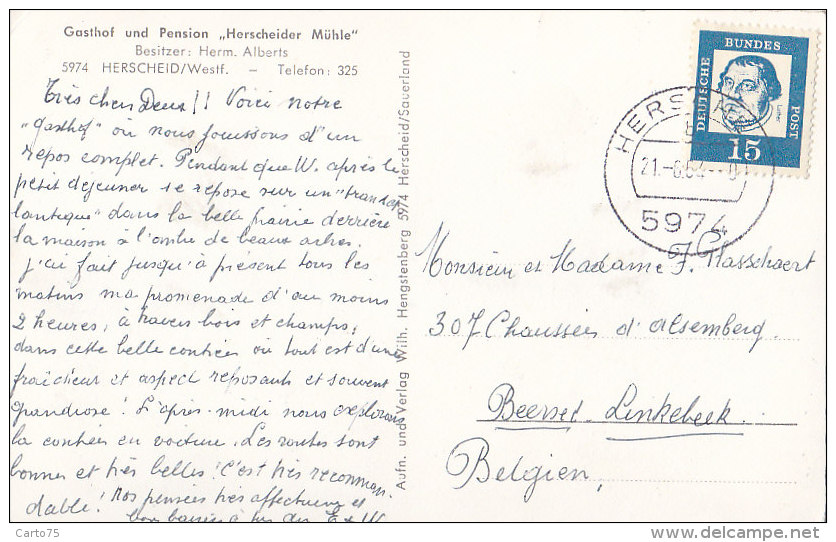 Gasthof und Pension „Herscheider Mühle"
Besitzer: Herm. Alberts
5974 HERSCHEID/Westf. – Telefon: 325
Très chers Deux!! Voici notre
"Gasthof" où nous jouissons d'un
repos complet. Pendant que W. après le
petit déjeuner se repose sur un "transat
lantique" dans la belle prairie derrière
la maison à l'ombre de beaux arbres.
J'ai fait jusqu'à présent tous les
matins ma promenade d'au moins
2 heures, à travers bois et champs,
dans cette belle contrée où tout est d'une
fraîcheur et aspect reposants et souvent
grandiose! L'après-midi nous explorons
la contrée en voiture. Les routes sont
bonnes et très belles! C'est très recomman-
dable! Nos pensées très affectueuses et
bons baisers à
Aufn. und Verlag Wilh. Hengstenberg 5974 Herscheid/Sauerland
DEUTSCHE
BUNDES
POST
Luther
15
HERSCHEID
21.-6.64
5974
Monsieur et Madame J. Plasschaert
307 Chaussée d'Alsemberg
Beersel-Linkebeek
Belgien,
Carto75
www.delcampe.net